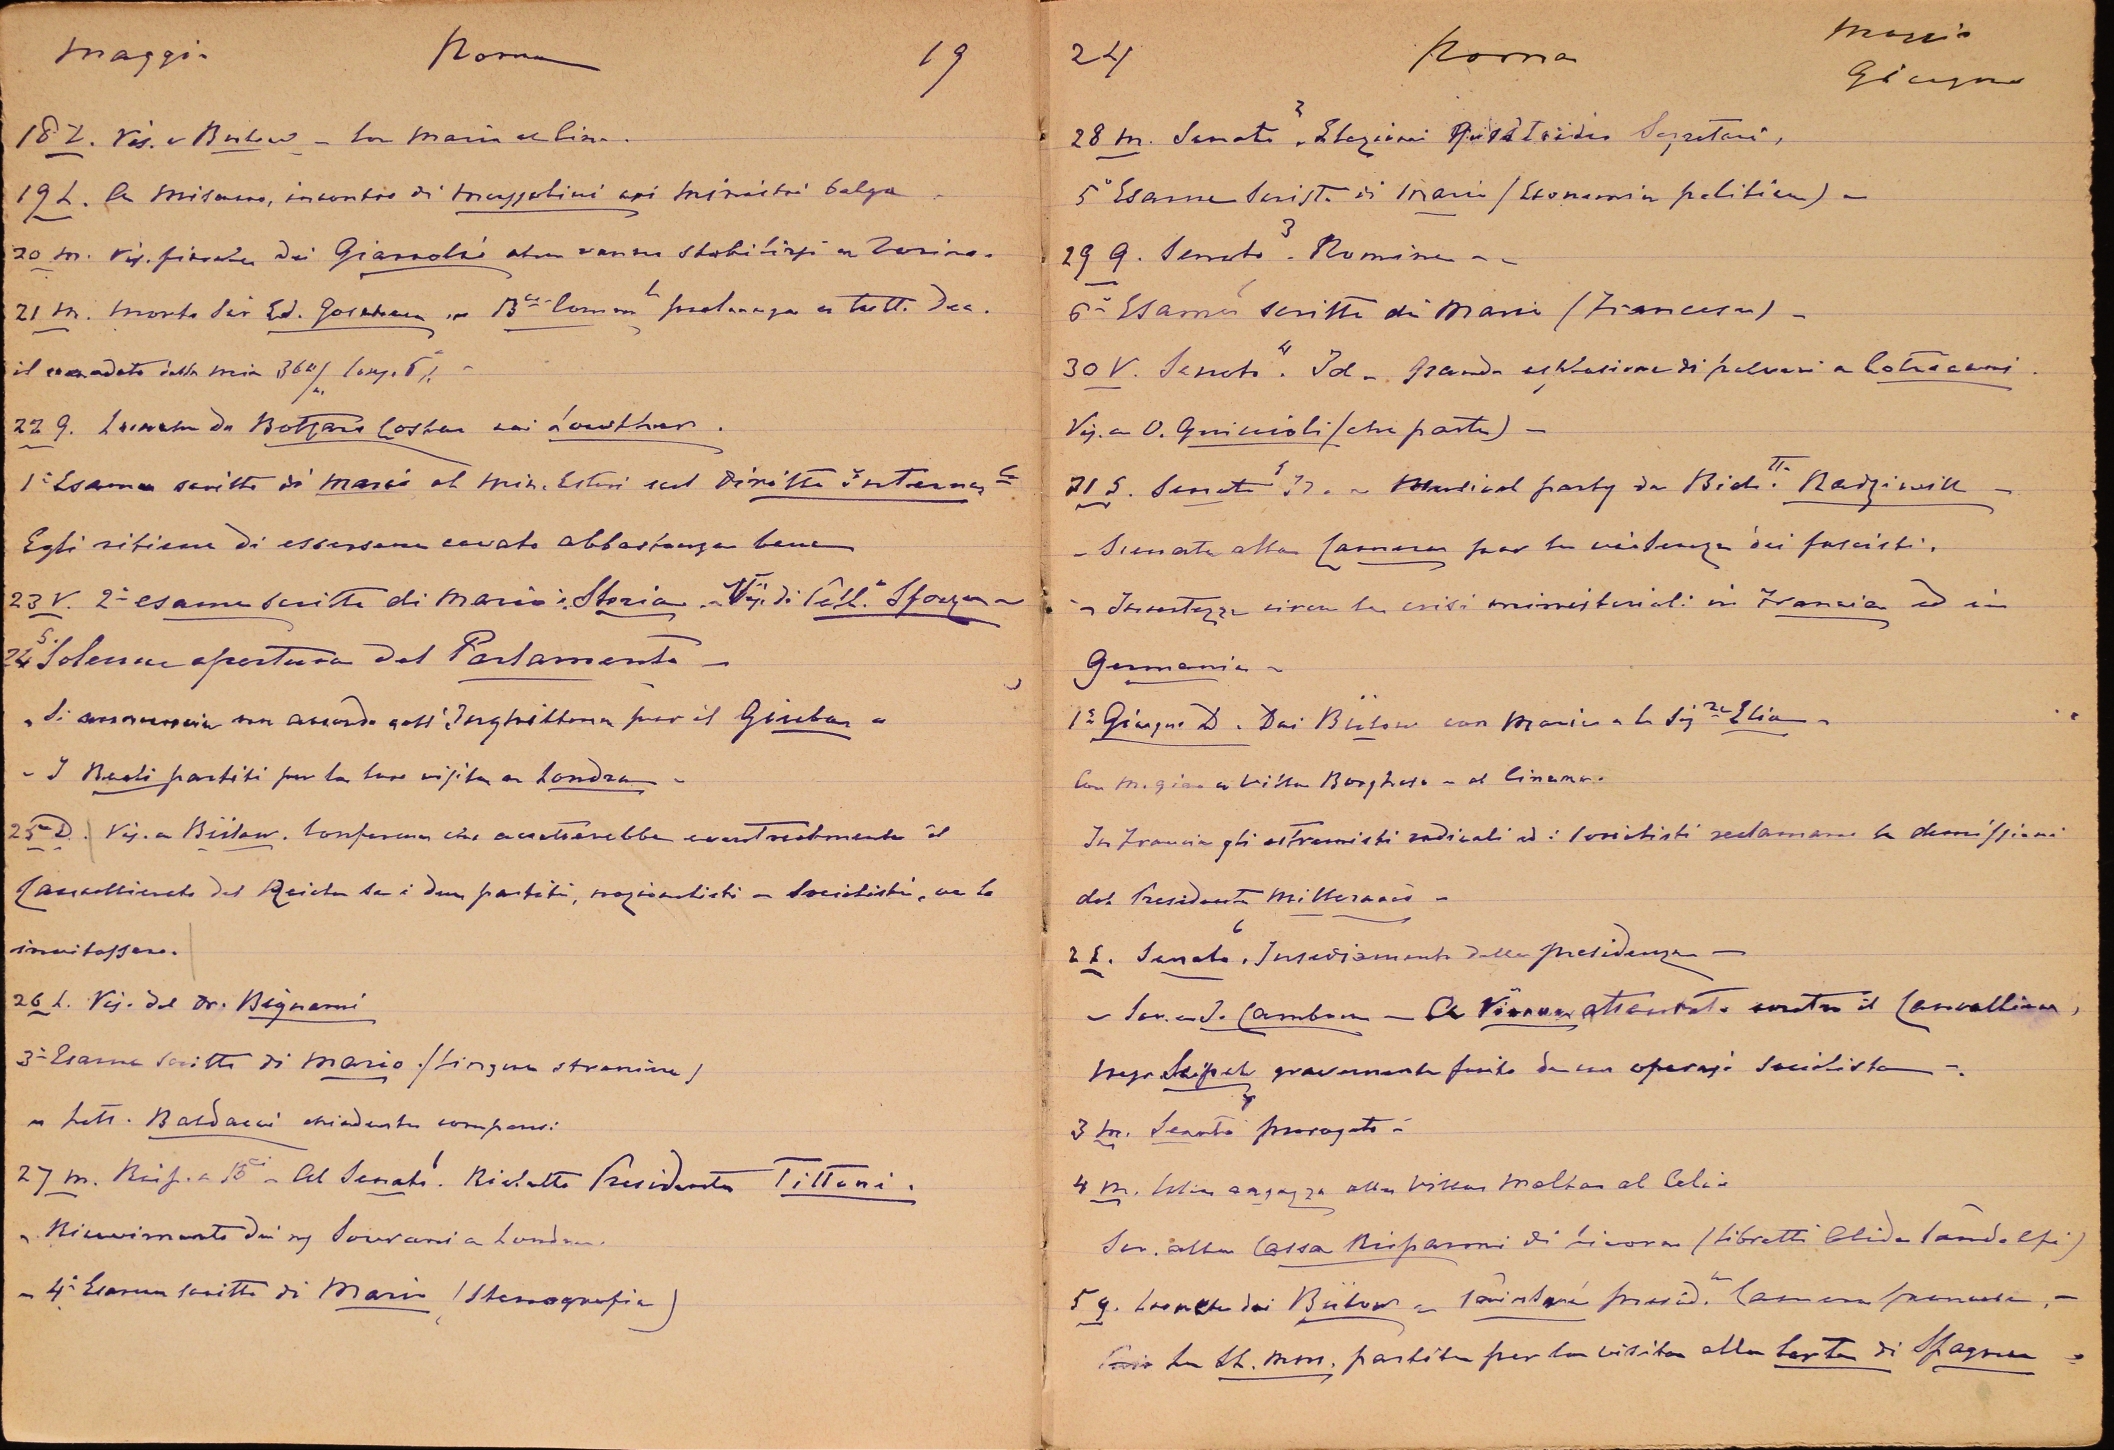 Maggio Roma 19
18 D. Vis. a Bülow - Con Mario al Cine.
19 L. A Milano, incontro di Mussolini coi ministri belga -
20 M. Vis. dei Giannotti che vanno stabilirsi a Torino.
21 M. Morte Sir Ed. Goschen - Comm prolunga a tutto Dec.
il mandato della mia
22 G. Lunch da Bottaro Costa coi Lowther.
1° Esame scritto di Mario al Min. Esteri sul Diritto Internaz.le
Egli ritiene di essersene cavato abbastanza bene
23 V. 2° esame scritto di Mario: Storia. - Vis. di Sforza -
24 S. Solenne apertura del Parlamento -
- Si annuncia un accordo coll'Inghilterra per il Giuba -
- I Reali partiti per la loro visita a Londra -
25 D. Vis. a Bülow. Conferma che accetterebbe eventualmente il
Cancellierato del Reich se i due partiti, nazionalisti e socialisti, ve lo
invitassero.
26 L. Vis. del Dr. Bignami
3° Esame scritto di Mario (Lingua straniera)
- Lett. Baldacci chiedente compensi
27 M. Risp. a B.ci - Al Senato 1. Rieletto Presidente Tittoni.
- Ricevimento dei ns Sovrani a Londra.
- 4° Esame scritto di Mario (Stenografia)
24 Roma Maggio
Giugno
28 M. Senato 2. Elezioni Segretari,
5° Esame scritto di Mario (Economia politica) -
29 G. Senato 3. Nomine - -
6° Esame scritto di Mario (Francese) -
30 V. Senato 4. Id - Grande esplosione di polveri a
Vis. a O. Guiccioli (che parte) -
31 S. Senato 5 Id. - Musical party da Radziwill -
- Serrata alla Camera per la violenza dei fascisti.
- Incertezza circa la crisi ministeriali in Francia ed in
Germania -
1° Giugno D. Dai Bülow con Mario e la Sig.ra Elia -
Con M. giro a Villa Borghese - al Cinema.
In Francia gli estremisti radicali ed i socialisti reclamano la demissioni
del Presidente Millerand -
2 L. Senato 6. Insediamento della presidenza -
- Scr. a J. Cambon - A Vienna attentato contro il Cancelliere,
Mgr Seipel gravemente ferito da un operajo socialista -
3 M. Senato 7 prorogato -
4 M. alla Villa Malta al Celio
Scr. alla Cassa Risparmi di Livorno (Libretti
5 G. Lunch dai Bülow - Painlevé presid. Camera francese. -
La St. Mm. partita per la visita alla Corte di Spagna -